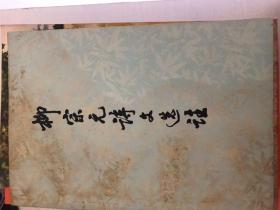 柳宗元诗文选注